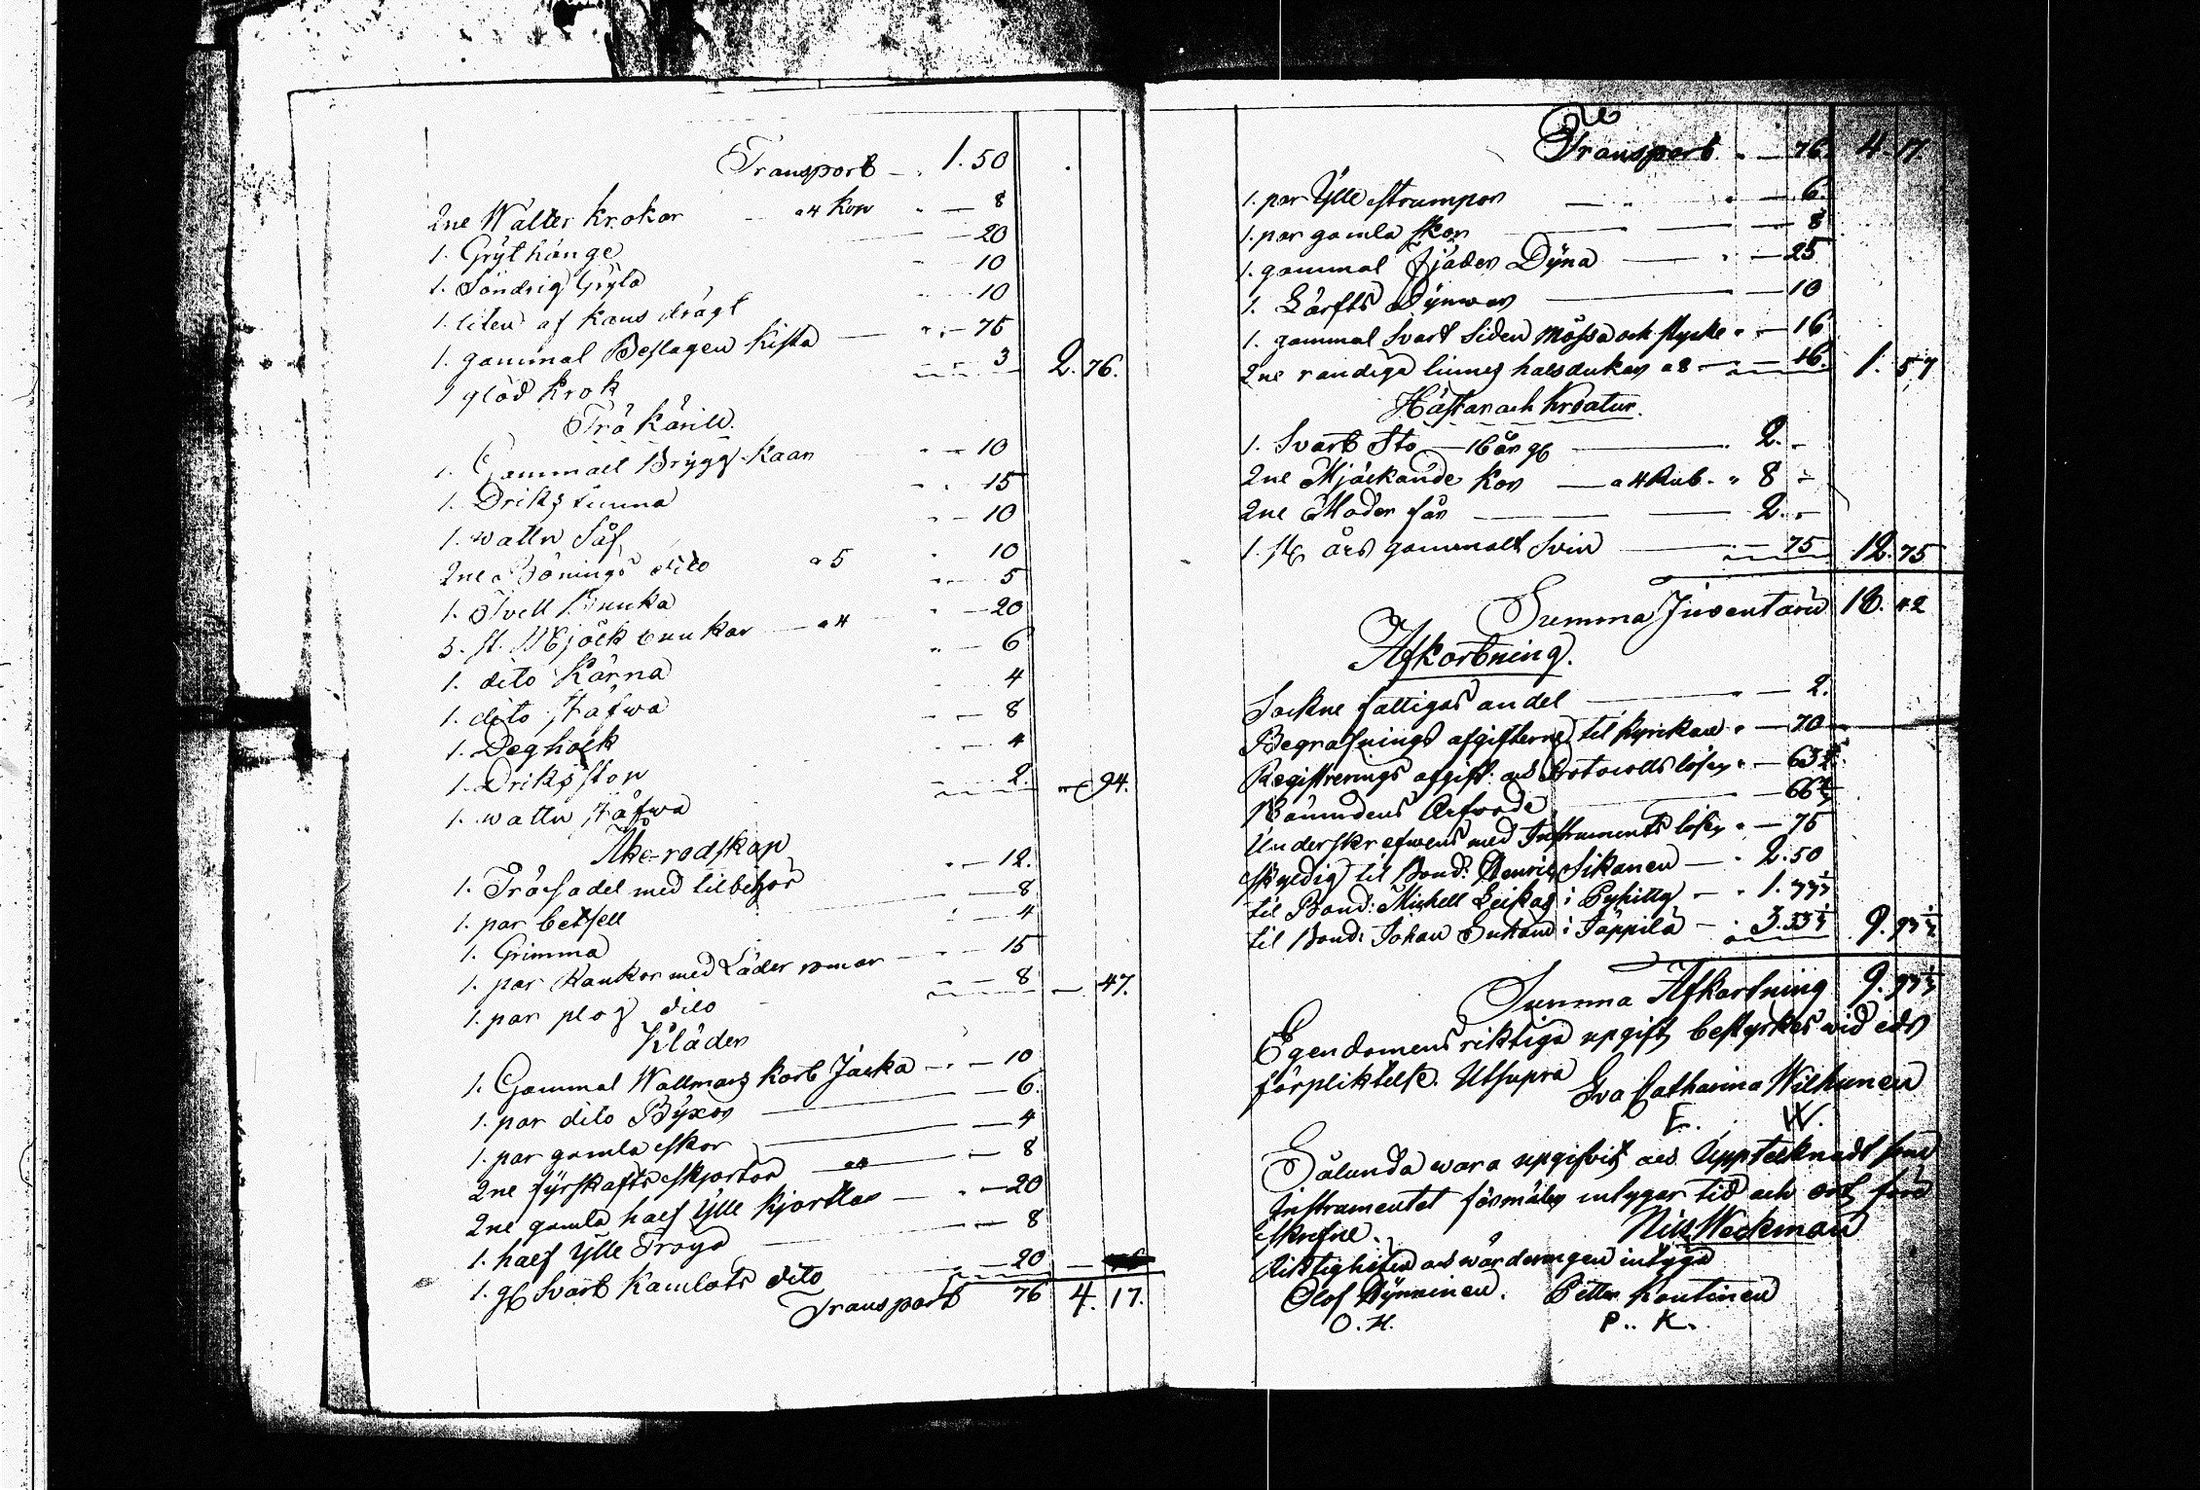 Transport — 1. 50
2ne Watter krokar — a 4 kop — 8
1. Grythänge — 20
1. Söndrig Gryta — 10
1. liten af kaus drägt — 10
1. gammal Beslagen kista — 75
1 glöd krok — 3 2. 76.
Trä käril.
1. Gammalt Brygg-kaar — 10
1. Driks tunna — 15
1. wattn Såf — 10
2ne Bönings dito a 5 10
1. Tvett Bunka — 5
5. st. Mjölk bunkar — a 4 — 20
1. dito Kärna — 6
1. dito Stäfwa 4
1. Deghölk — 8
1. Driksstop — 4
1. wattn stäfwa — 2. 94.
Åke-redskap
1. Träsadel med tilbehör — 12.
1. par betsell — 8
1. Grimma — 4
1. par Rankor med Läder remar — 15
1. par plog dito — 8 — 47.
Kläder
1. Gammal Wallmans kort Jacka — 10
1. par dito Byxor — 6.
1. par gamla skor — 4
2ne fyrskafts skjortor — a 4 — 8
2ne gamla half Ylle kjortlar — 20
1. half Ylle Tröya — 8
1. gl Svart Kamlots dito — 20
Transport 76 4. 17.
Transport — 76. 4. 17.
1. par Ylle strumpor — 6.
1. par gamla skor — 8
1. gammal fjäder Dyna — 25
1. Lärfts Dynwar — 10
1. gammal Svart Siden Mössa och stycke — 16
2ne randiga linnes halsdukar a 8 — 16. 1. 57
Hästar och kreatur.
1. Svart Sto — 16 år gl — 2. -
2ne Mjölkande kor — a 4 Rub. 8 -
2ne Moder får — 2. -
1. st. års gammalt Svin — 75 12. 75
Summa Inventarii 18. 42
Afkortning.
Sockne fattigas andel — 2.
Begrafnings afgifterne til kyrkan — 70
Registrerings afgift och Protocolls lösen — 63
Nämndens Arfwode — 66
Underskrefwens med Instruments lösen — 75
Skyldig til Bond: Henric Sikanen — 2. 50
til Bond: Michell Leikas i — 1. 33⅓
til Bond: Johan Suhoin i Jäppilä — 3. 33⅓ 9. 93⅓
Summa Afkortning 9. 93⅓
Egendomens riktiga upgift bestyrkes wid eds
förpliktelse. Utsupra Eva Catharina Wilhunen
E. W.
Sålunda wara upgifvit och Upptecknadt som
Instrumentet förmäler intygar tid och ort förr
skrefne. Nils Weckman
Riktigheten och wärderingen intyga
Olof Hynninen. Petter kontinen
O. H. P. K.